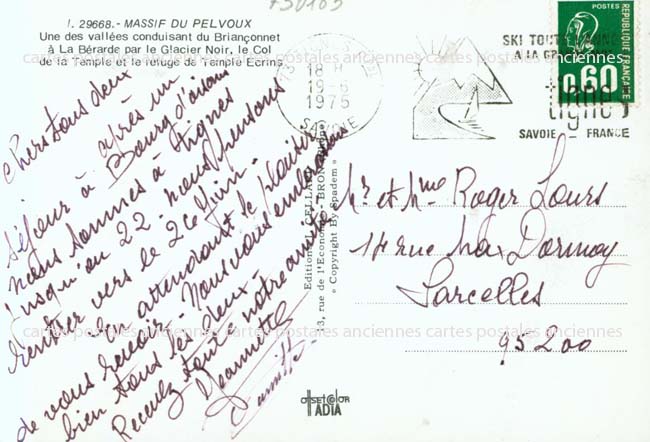 730103
I. 29668.- MASSIF DU PELVOUX
Une des vallées conduisant du Briançonnet
à La Bérarde par le Glacier Noir, le Col
de la Temple et le refuge de Temple Ecrins
chers tous deux
après un
séjour à Bourg d'oisans
nous sommes à tignes
jusqu'au 22 - nous pensons
rentrer vers le 26 juin -
En attendant le plaisir
de vous revoir. Nous vous embrassons
bien tous les deux -
Recevez toute notre amitié
Jeannette
18
19-6
1975
SAVOIE
SKI TOUTE L'ANNEE
A LA GRANDE
tignes
SAVOIE - FRANCE
POSTES
0,60
REPUBLIQUE FRANÇAISE
Editions J. CELLARD
, rue de l'Economie - BRON
Copyright By Spadem
Mr et Mme Roger Lours
17 rue Max Dormoy
Sarcelles
95200
cartes postales anciennes cartes postales anciennes cartes postales anciennes
OFFSET COLOR
IADIA